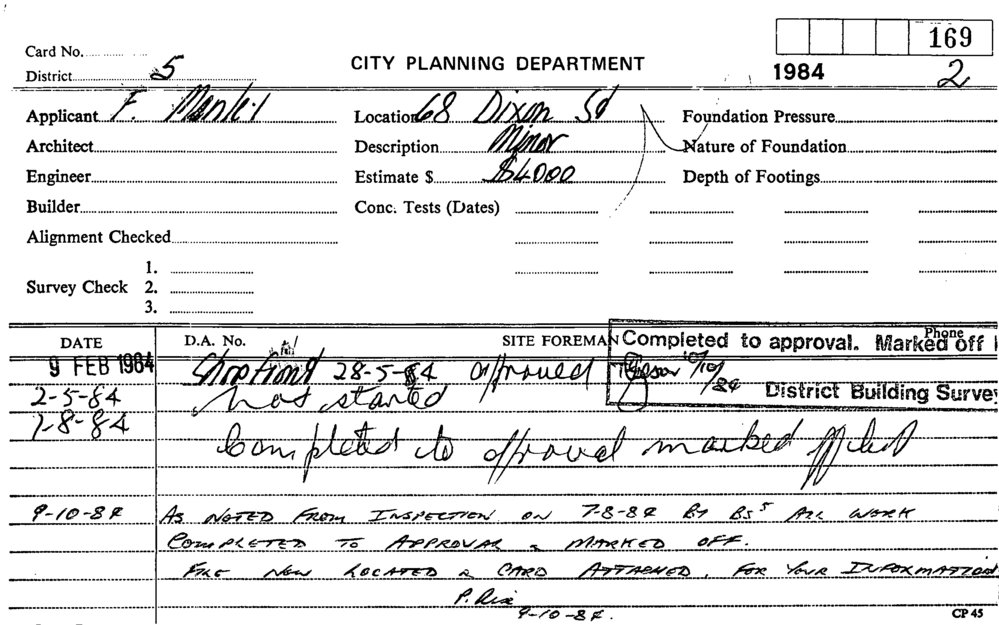 169
Card No.
District 5
CITY PLANNING DEPARTMENT
1984 2
Applicant F. Location 68 Dixon St Foundation Pressure
Architect Description Minor Nature of Foundation
Engineer Estimate $ $4000 Depth of Footings
Builder Conc. Tests (Dates)
Alignment Checked
1.
Survey Check 2.
3.
DATE D.A. No. SITE FOREMAN Phone
Completed to approval. Marked off
9 FEB 1984 Shopfront 28-5-84 approved
District Building Survey
2-5-84 not started
7-8-84
Completed to approval marked off
9-10-84 AS NOTED FROM INSPECTION ON 7-8-84 BY BS5 ALL WORK
COMPLETED TO APPROVAL & MARKED OFF.
FILE NOW LOCATED & CARD ATTACHED. FOR YOUR INFORMATION
9-10-84.
CP 45